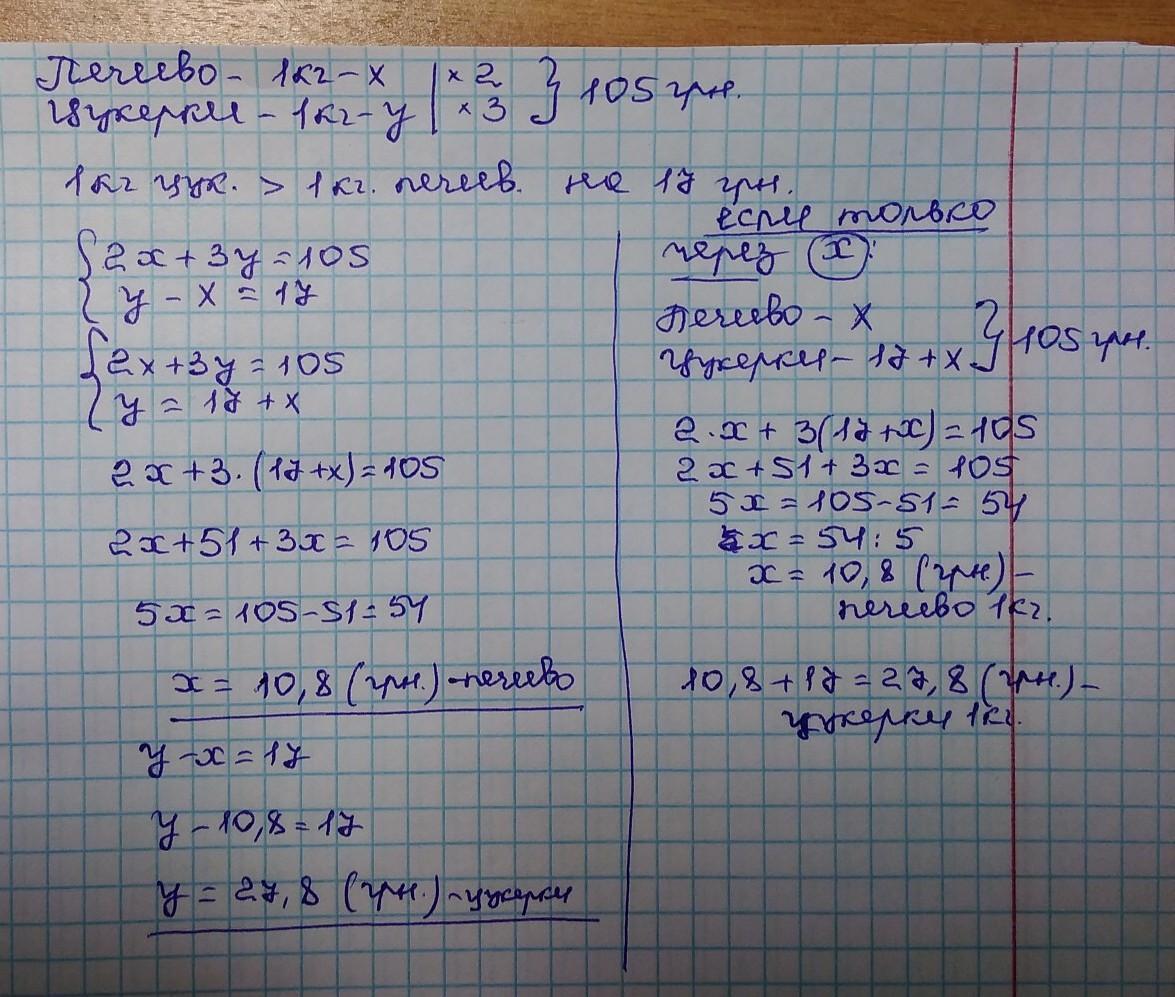 Печево - 1кг - x | × 2 } 105 грн.
Цукерки - 1кг - y | × 3
1кг цук. > 1кг. печев. на 17 грн.
{ 2x + 3y = 105
y - x = 17
{ 2x + 3y = 105
y = 17 + x
2x + 3 · (17+x) = 105
2x + 51 + 3x = 105
5x = 105 - 51 = 54
x = 10,8 (грн.) - печево
y - x = 17
y - 10,8 = 17
y = 27,8 (грн.) - цукерки
если только
через x:
Печево - x } 105 грн.
Цукерки - 17 + x
2 · x + 3(17+x) = 105
2x + 51 + 3x = 105
5x = 105 - 51 = 54
x = 54 : 5
x = 10,8 (грн.) -
печево 1кг.
10,8 + 17 = 27,8 (грн.) -
цукерки 1кг.